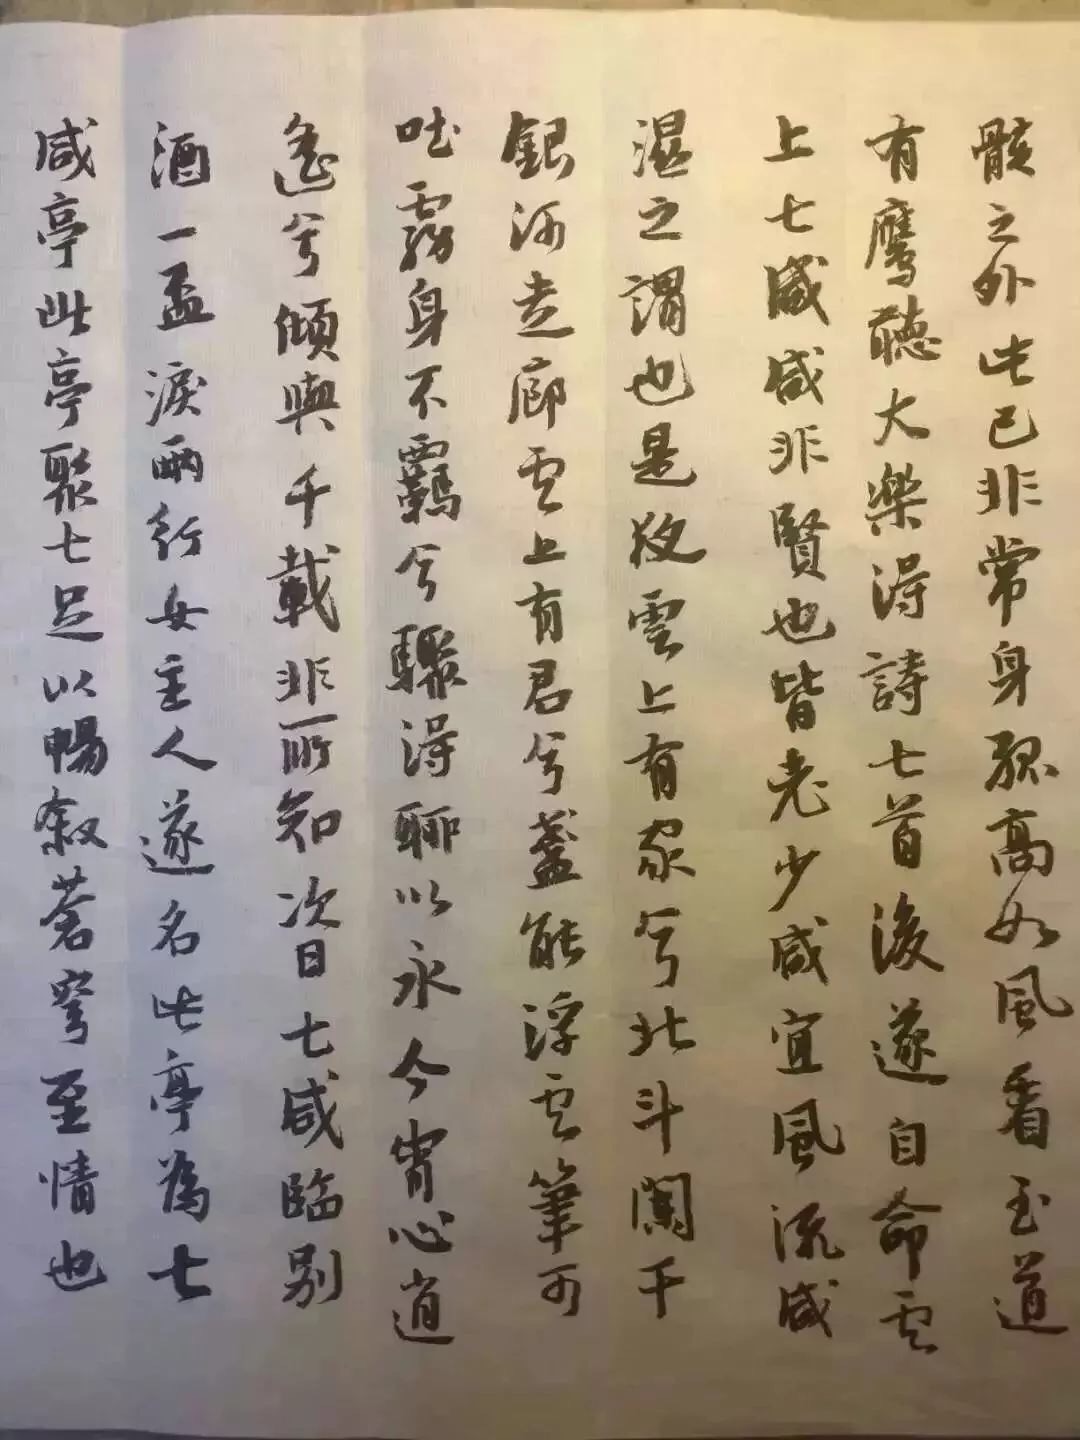 骸之外此已非常身孤高如風看至道
有鷹聽大樂得詩七首後遂自命雲
上七咸咸非賢也皆老少咸宜風流咸
濕之謂也是夜雲上有家兮北斗闌干
銀河走廊雲上有君兮蓋能浮雲筆可
吐霧身不羈兮驟得聊以永今宵心逍
遙兮傾與千載非所知次日七咸臨别
酒一盃淚兩行女主人遂名此亭為七
咸亭此亭聚七足以暢叙蒼穹至情也